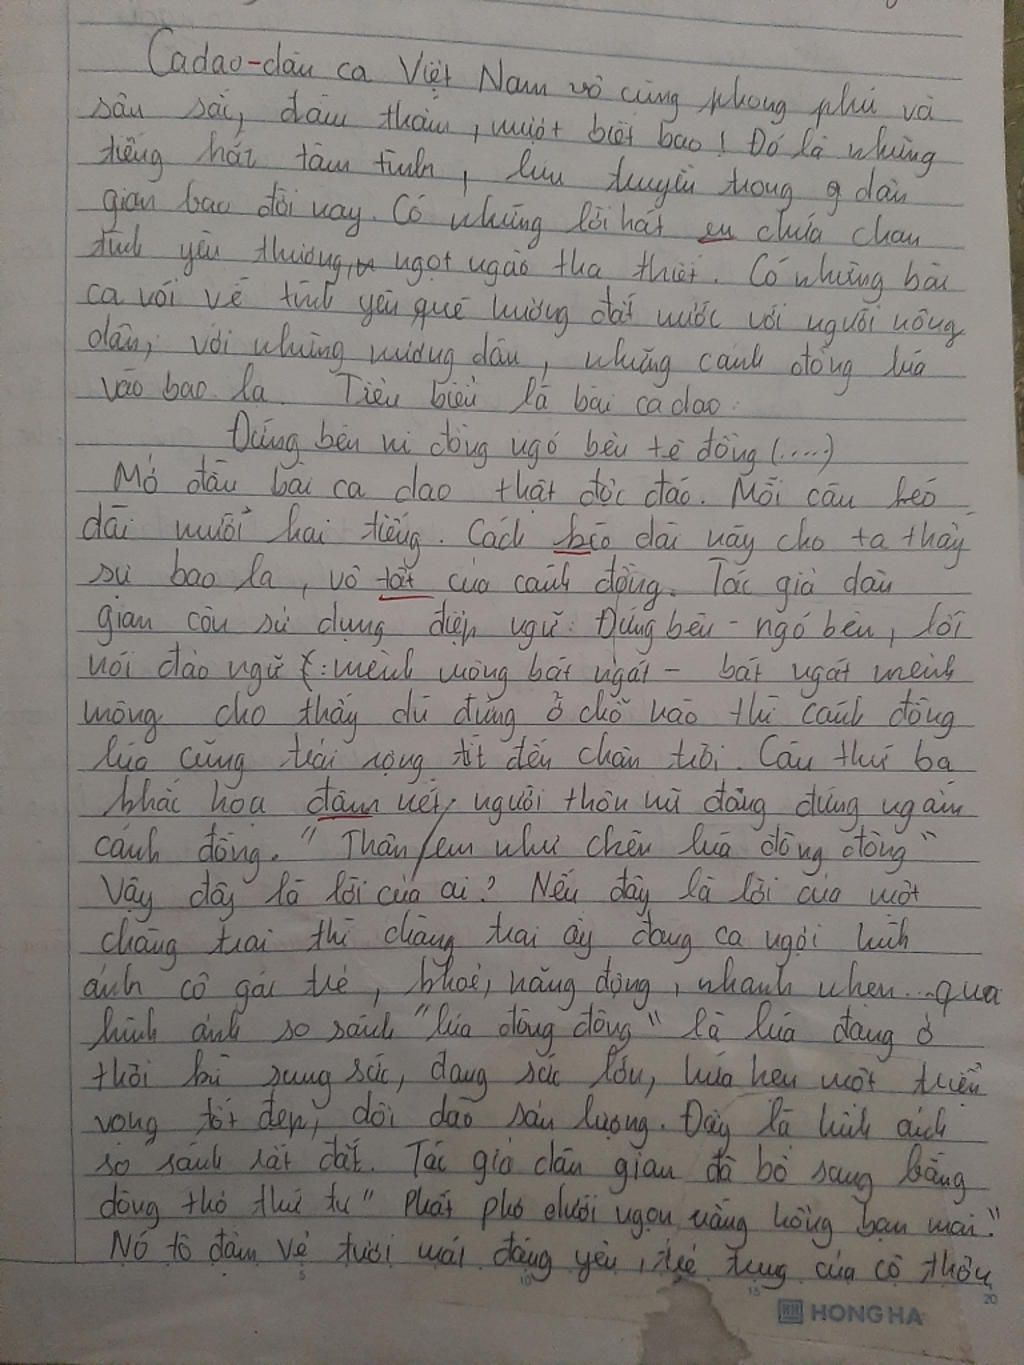 Cadao-dân ca Việt Nam vô cùng phong phú và
sâu sắc, đằm thắm, mượt biết bao! Đó là những
tiếng hát tâm tình, lưu truyền trong dân
gian bao đời nay. Có những lời hát chứa chan
tình yêu thương, ngọt ngào tha thiết. Có những bài
ca nói về tình yêu quê hương đất nước với người nông
dân, với những nương dâu, những cánh đồng lúa
vào bao la. Tiêu biểu là bài cadao:
Đứng bên ni đồng ngó bên tê đồng (.....)
Mở đầu bài ca dao thật độc đáo. Mỗi câu kéo
dài mười hai tiếng. Cách kéo dài này cho ta thấy
sự bao la, vô tất của cánh đồng. Tác giả dân
gian còn sử dụng điệp ngữ: Đứng bên - ngó bên, lối
nói đảo ngữ: mênh mông bát ngát - bát ngát mênh
mông cho thấy dù đứng ở chỗ nào thì cánh đồng
lúa cũng trải rộng tít đến chân trời. Câu thứ ba
khắc họa đâm nét, người thôn nữ đang đứng ngắm
cánh đồng. "Thân em như chẽn lúa đòng đòng"
Vậy đây là lời của ai? Nếu đây là lời của một
chàng trai thì chàng trai ấy đang ca ngợi hình
ảnh cô gái trẻ, khoẻ, năng động, nhanh nhẹn...qua
hình ảnh so sánh "lúa đòng đòng" là lúa đang ở
thời kì sung sức, đang sức lớn, hứa hẹn một triển
vọng tốt đẹp, dồi dào sản lượng. Đây là hình ảnh
so sánh rất đắt. Tác giả dân gian đã bổ sung bằng
dòng thơ thứ tư "Phất phơ dưới ngọn nắng hồng ban mai."
Nó tô đậm vẻ tươi mát đáng yêu, trẻ trung của cô thôn
5 10 15 20
HONG HA